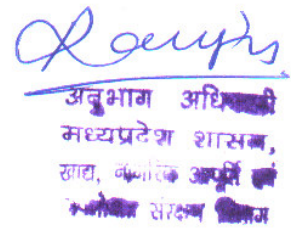 अनुभाग अधिकारी
मध्यप्रदेश शासन,
खाद्य, नागरिक आपूर्ति एवं
संरक्षण विभाग